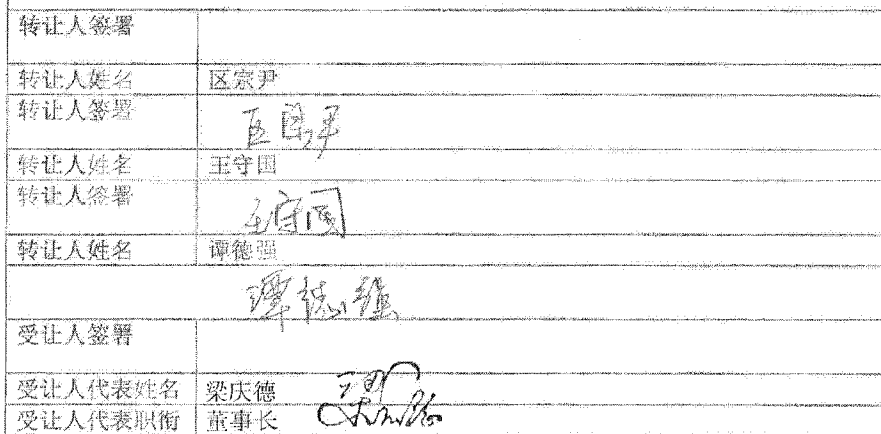 转让人签署
转让人姓名 区宗尹
转让人签署
转让人姓名 王守国
转让人签署 王守国
转让人姓名 谭德强
譚德强
受让人签署
受让人代表姓名 梁庆德
受让人代表职衔 董事长